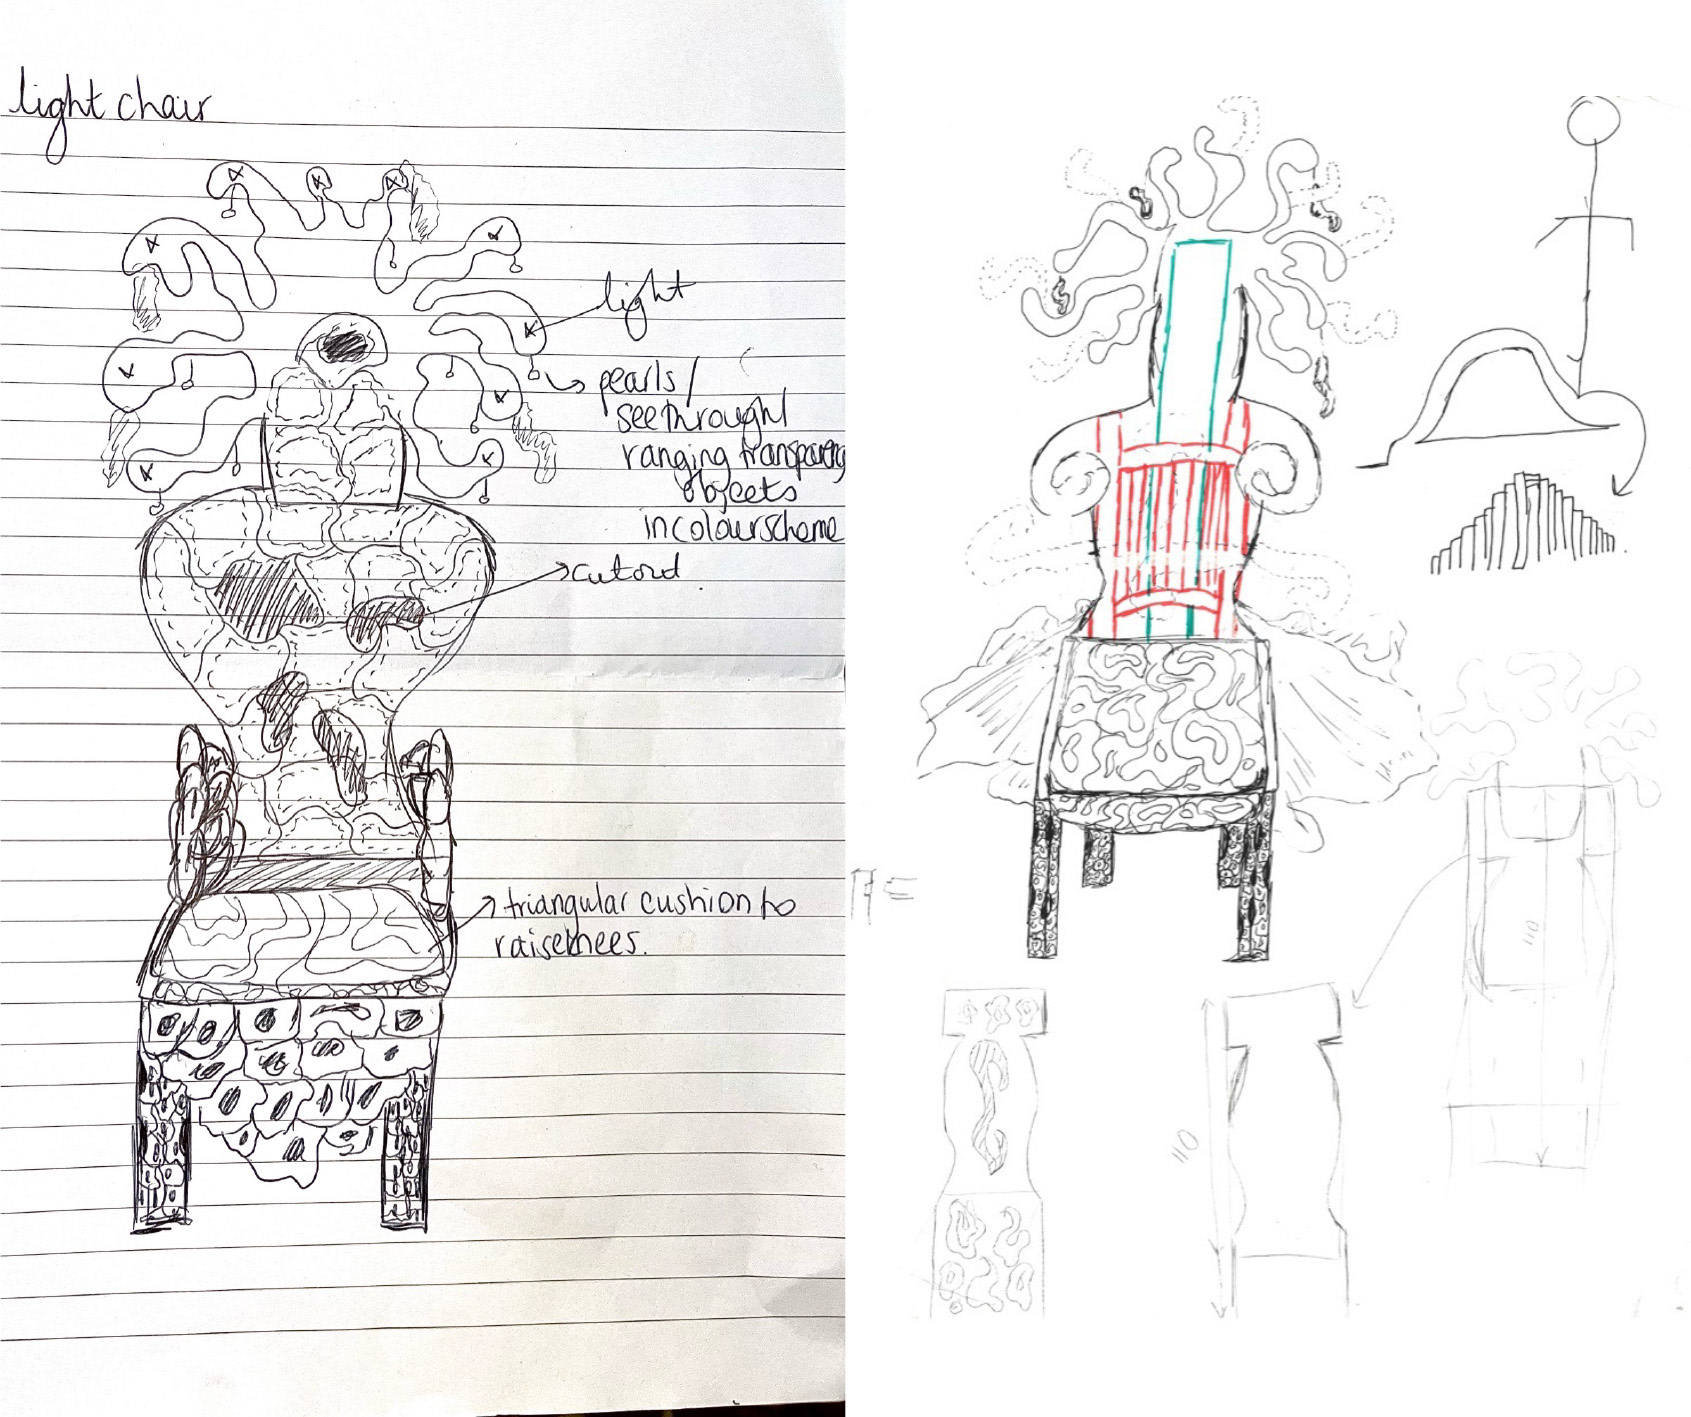 light chair
light
pearls/
seethrough/
ranging transparent
objects
in colour scheme
cutout
triangular cushion to
raise knees.
110
110